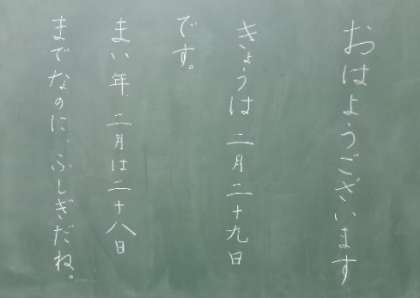 おはようございます
きょうは二月二十九日
です。
まい年、二月は二十八日
までなのに、ふしぎだね。